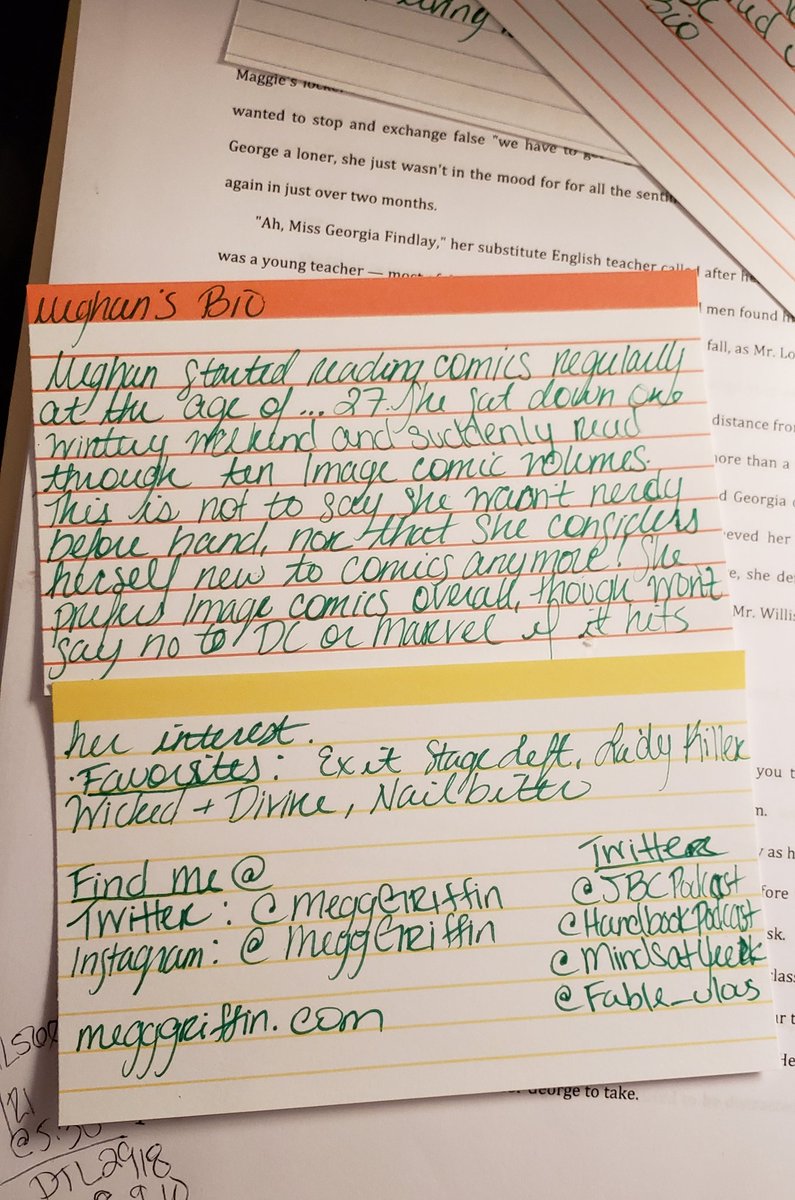 Bio
Maggie's
wanted to stop and exchange false "we have to
George a loner, she just wasn't in the mood for for all the
again in just over two months.
"Ah, Miss Georgia Findlay," her substitute English teacher called after
was a young teacher —
men found
fall, as Mr.
distance
more than a
Georgia
her
e, she
Mr.
you
as
fore
sk.
George to take.
Meghan's Bio
Meghan started reading comics regularly
at the age of... 27. She sat down one
wintry weekend and suddenly read
through ten Image comic volumes.
This is not to say she wasn't nerdy
before hand, nor that she considers
herself new to comics anymore! She
prefers Image comics overall, though won't
say no to DC or Marvel if it hits
her interest.
·Favorites: Exit Stage Left, Lady Killer
Wicked + Divine, Nailbiter
Find me @
Twitter: @MeggGriffin
Instagram: @MeggGriffin
megggriffin.com
Twitter
@JBCPodcast
@HandbookPodcast
@MindsatYeek
@Fable_ulas
21
@5:30
DTL2918